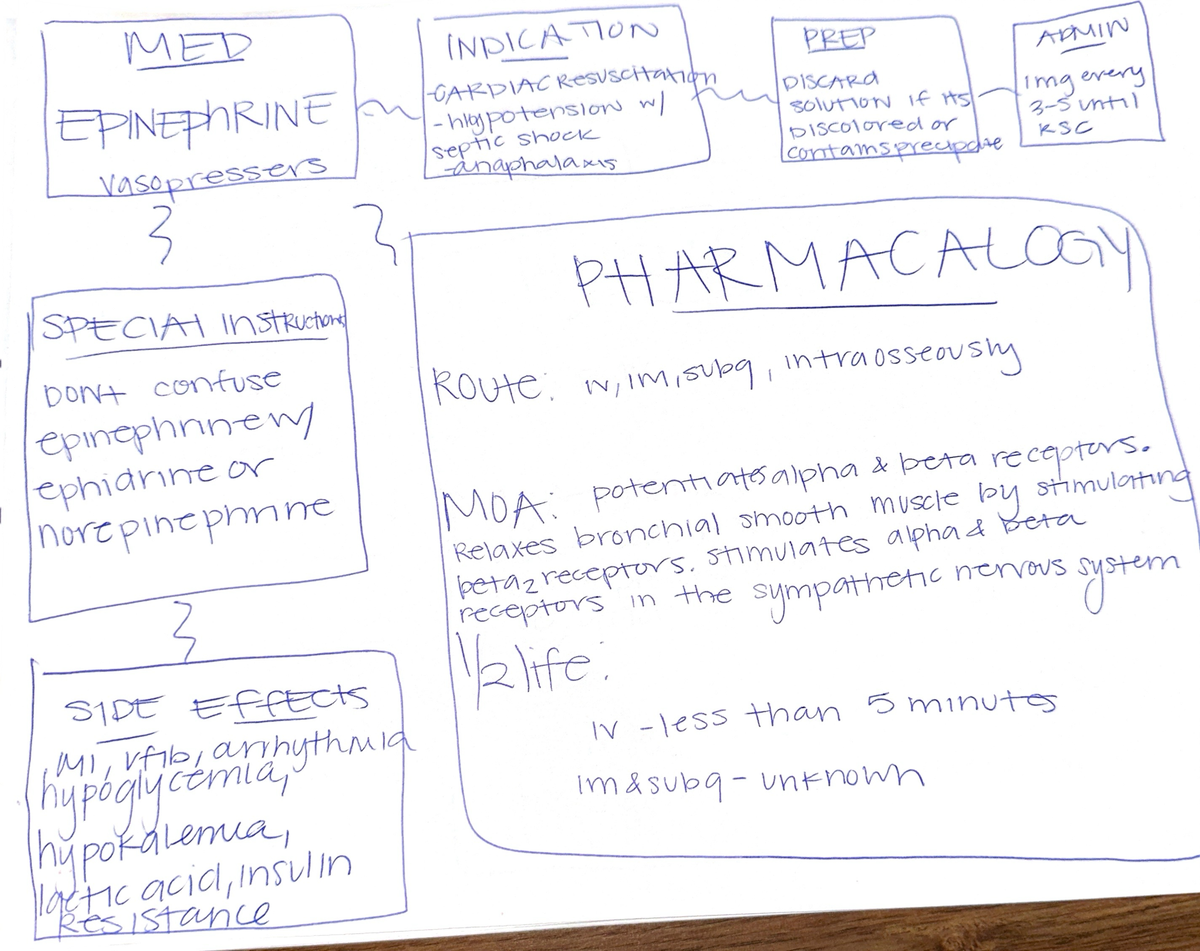 MED
EPINEPHRINE
vasopressers
INDICATION
-CARDIAC RESUSCITATION
-hypotension w/
septic shock
-anaphalaxis
PREP
DISCARD
solution if its
Discolored or
contains
ADMIN
1mg every
3-5 until
SPECIAL Instructions
DONT confuse
epinephrine w/
ephidrine or
norepinephrine
SIDE EffEcts
, MI, vfib, arrhythmia
hypoglycemia,
hypokalemia,
lactic acid, insulin
Resistance
PHARMACALOGY
ROUTE: IV, IM, subq, intraosseously
MOA: potentiates alpha & beta receptors.
Relaxes bronchial smooth muscle by stimulating
beta2 receptors. stimulates alpha & beta
receptors in the sympathetic nervous system
1/2 life:
IV - less than 5 minutes
IM & subq - unknown